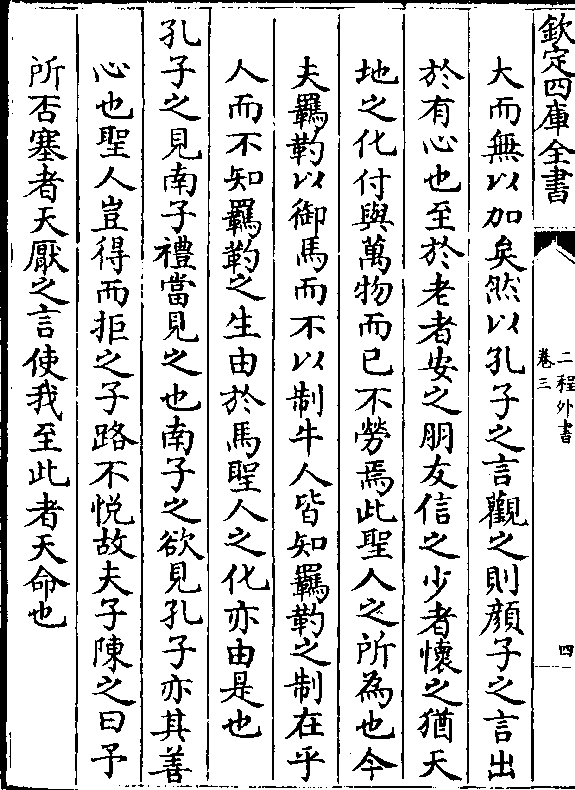 欽定四庫全書
二程外書
卷三
四
大而無以加矣然以孔子之言觀之則顔子之言出
於有心也至於老者安之朋友信之少者懷之猶天
地之化付與萬物而已不勞焉此聖人之所為也今
夫羈靮以御馬而不以制牛人皆知羈靮之制在乎
人而不知羈靮之生由於馬聖人之化亦由是也
孔子之見南子禮當見之也南子之欲見孔子亦其善
心也聖人豈得而拒之子路不悅故夫子陳之曰予
所否塞者天厭之言使我至此者天命也